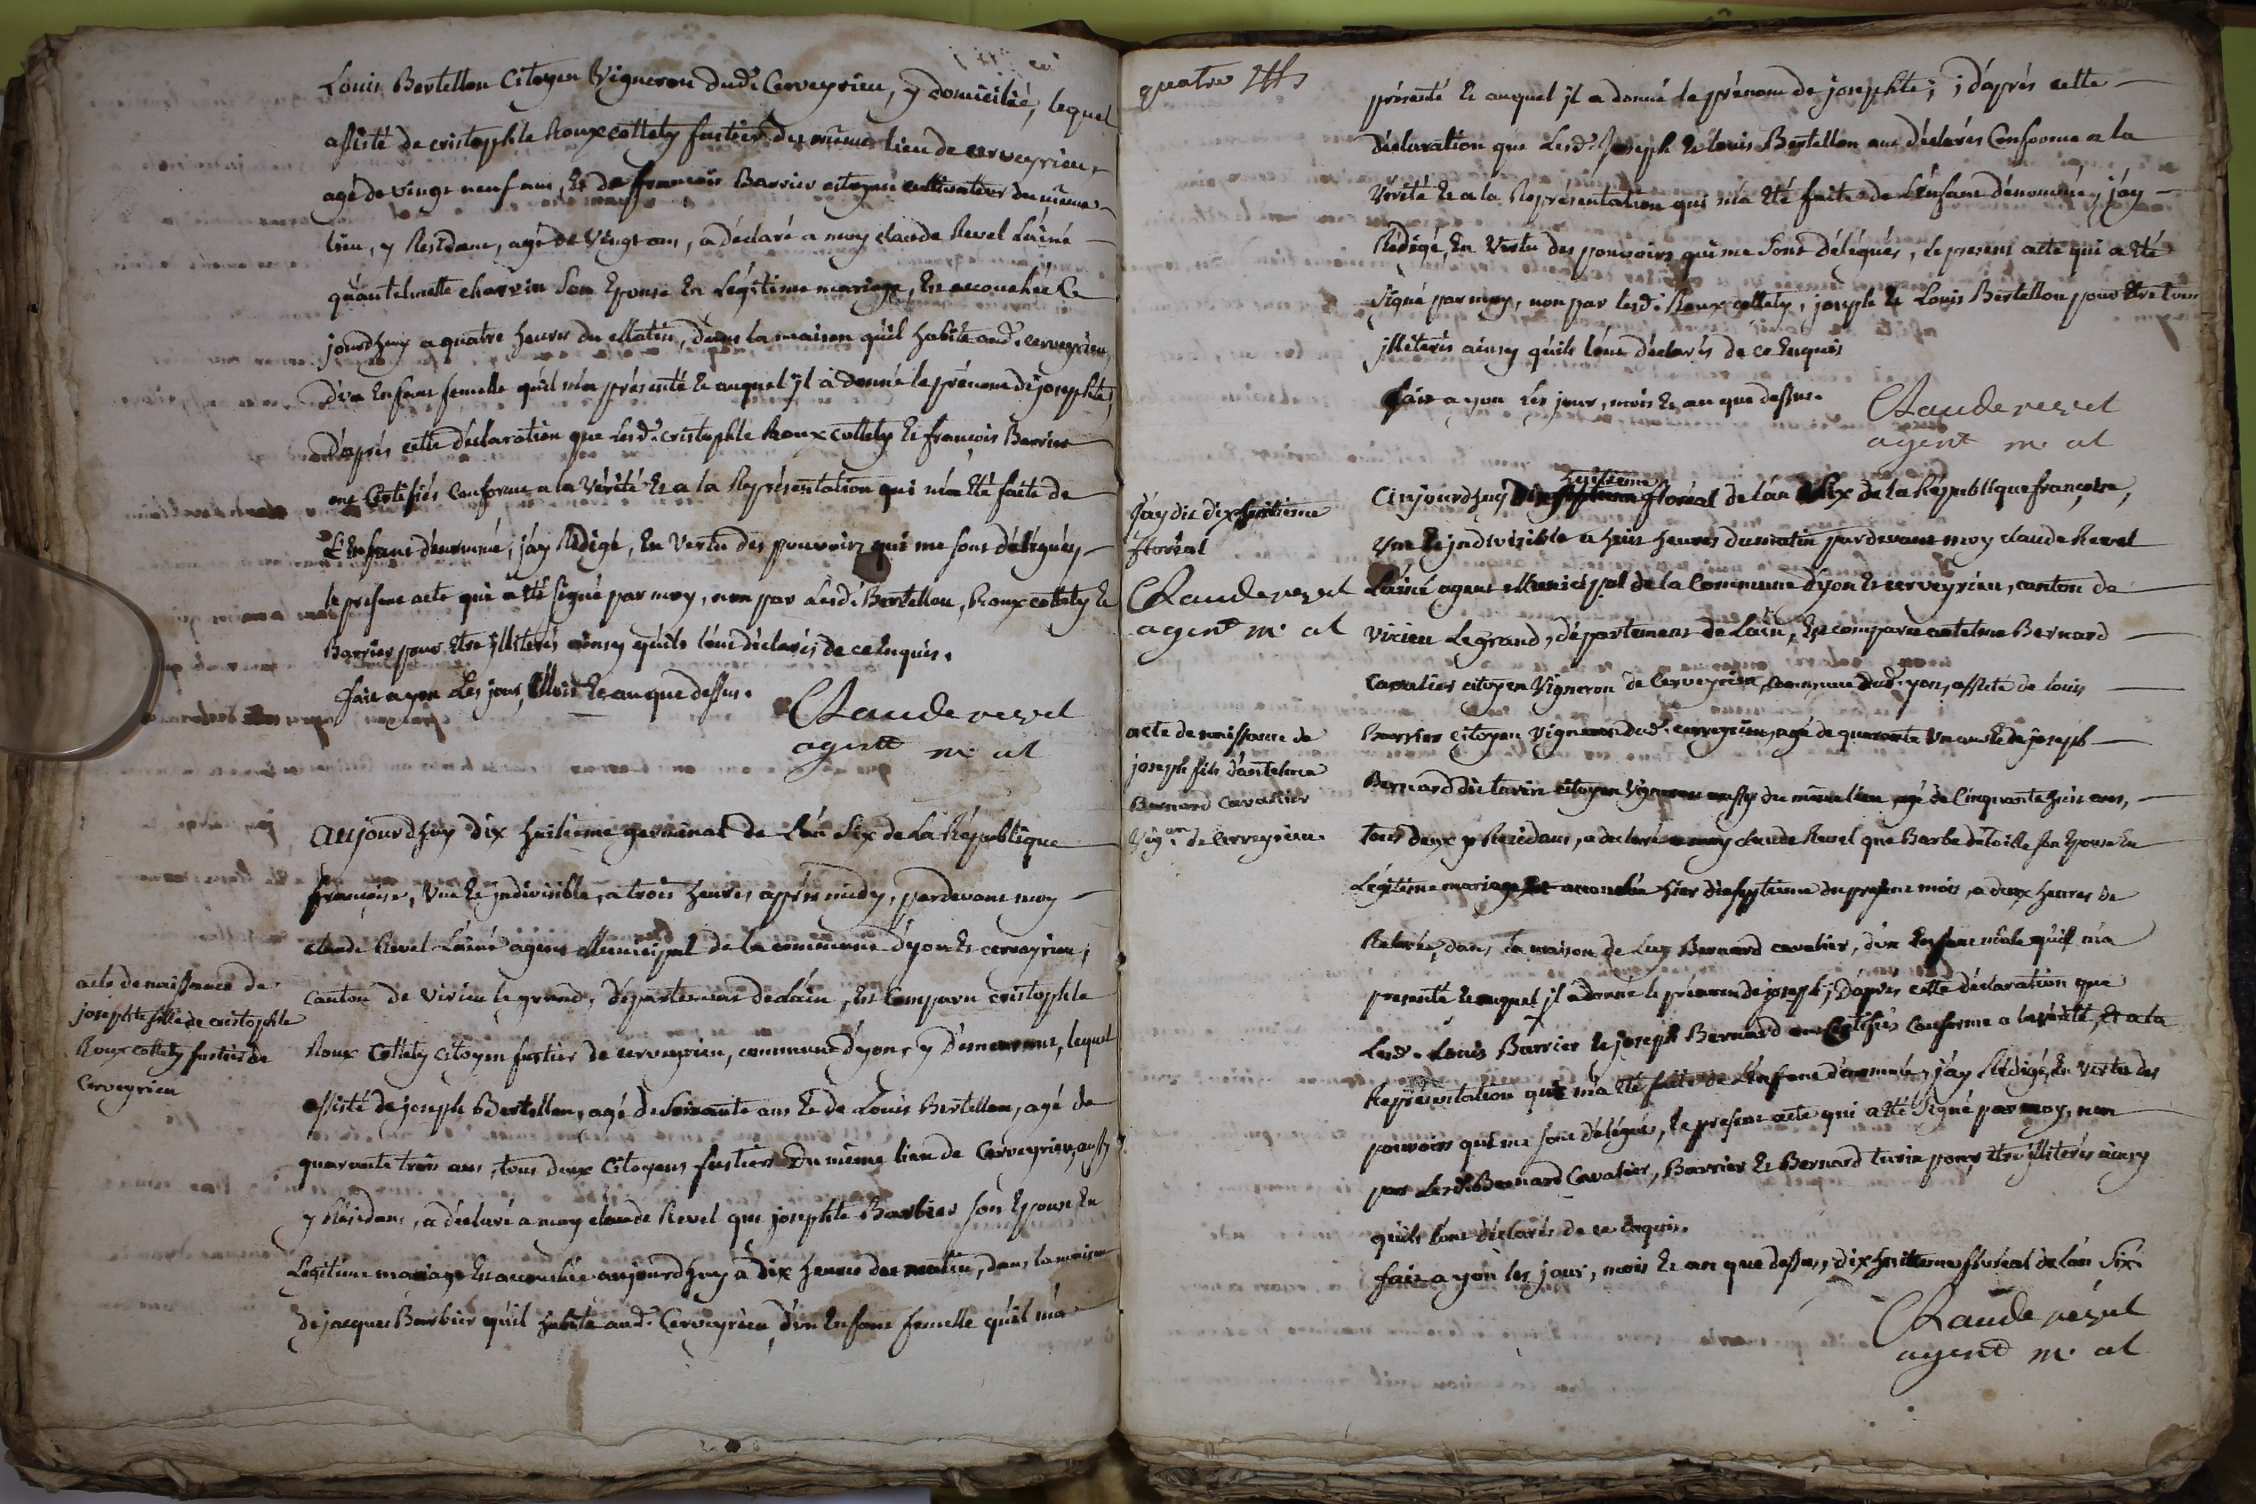 Louis Bertellon Citoyen Vigneron dud. Cerveyrieu, y domicilié, lequel
assisté de cristophle Roux collety fustier du même lieu de cerveyrieu,
agé de vingt neuf ans, Et de françois Barrier citoyen cultivateur du même
lieu, y Residant, agé de vingt ans, a déclaré a moy claude Revel Lainé
qu'antelmette charvin Son Epouse En Légitime mariage, Est accouchée Ce
jourdhuy a quatre heures du Matin, dans la maison qu'il habite aud. cerveyrieu,
d'un Enfant femelle qu'il m'a présenté Et auquel jl a donné le prénom de josephte;
d'après cette déclaration que Lesd. cristophle Roux collety Et françois Barrier
ont Certifiés Conforme a la Vérité Et a la Représentation qui m'a Eté faite de
L'Enfant dénommé; j'ay Rédigé, En Vertu des pouvoirs qui me sont délégués
le present acte qui a Eté signé par moy, non par Lesd. Bertellon, Roux collety Et
Barrier pour Etre jlliterés ainsy qu'ils l'ont déclarés de ce Enquis.
fait a yon Les jour, Mois Et an que dessus.
Claude revel
agent m. al
acte de naissance de
josephte fille de cristophle
Roux collety fustier de
Cerveyrieu
aujourdhuy dix huitieme germinal de L'an Six de La République
françoise, Une Et jndivisible, a trois heures après midy, pardevant moy
claude Revel Lainé agent Municipal de la commune d'yon Et cerveyrieu,
canton de Virieu le grand, département de l'ain, Est Comparu cristophle
Roux Collety Citoyen fustier de cerveyrieu, commune d'yon, y Demeurant, lequel
assisté de joseph Bertellon, agé de Soixante ans Et de Louis Bertellon, agé de
quarante trois ans, tous deux Citoyens fustiers Du même lieu de Cerveyrieu, aussy
y Résidant, a déclaré a moy claude Revel que josephte Barbier son Epouse En
Legitime mariage Est accouchée aujourdhuy à dix heures du matin, dans la maison
de jacques Barbier qu'il habite aud. Cerveyrieu, d'un Enfant femelle qu'il m'a
quatre
présenté Et auquel jl a donné le prénom de josephte; d'après cette
déclaration que Lesd. Joseph Et louis Bertellon ont déclarés Conforme a la
Vérité Et a la Représentation qui m'a Eté faite de L'Enfant dénommé, j'ay
Rédigé, En Vertu des pouvoirs qui me sont délégués, le present acte qui a Eté
signé par moy, non par lesd. Roux collety, joseph Et Louis Bertellon pour Etre tous
jlliterés ainsy qu'ils l'ont déclarés de ce Enquis
fait a yon Les jour, mois Et an que dessus.
Claude revel
agent m. al
J'ay dit dix huitieme
floréal
Claude revel
agent m. al
acte de naissance de
joseph fils d'antelme
Bernard Cavalier
Vig.on de Cerveyrieu.
huitieme
Cejourdhuy floréal de l'an Six de la République françoise,
Une Et jndivisible a huit heures du matin pardevant moy claude Revel
Lainé agent Municipal de la Commune d'yon Et cerveyrieu, canton de
Virieu Le grand, département de Lain, Est comparu antelme Bernard
Cavalier citoyen Vigneron de Cerveyrieu, commune dud. yon, assisté de louis
Barrier citoyen Vigneron dud. cerveyrieu, agé de quarante Un ans Et de joseph
Bernard dit turin citoyen Vigneron aussy du même lieu agé de Cinquante huit ans,
tous deux y Residans, a declaré a moy claude Revel que Barbe son Epouse En
Légitime mariage Est accouchée hier dixseptieme du present mois, a deux heures de
Relevée, dans la maison de Luy Bernard cavalier, d'un Enfant mâle qu'il m'a
presenté Et auquel jl a donné le prénom de joseph; D'après cette déclaration que
Lesd. Louis Barrier Et joseph Bernard ont Certifiés Conforme a la vérité, Et a la
Représentation qui m'a Eté faite de L'Enfant dénommé, j'ay Rédigé, En Vertu des
pouvoirs qui me sont délégués, le present acte qui a Eté Signé par moy, non
par Lesd. Bernard Cavalier, Barrier Et Bernard turin pour Etre jlliterés ainsy
qu'ils l'ont déclarés de ce Enquis.
fait a yon les jour, mois Et an que dessus, dix huitieme floréal de l'an Six.
Claude revel
agent m. al